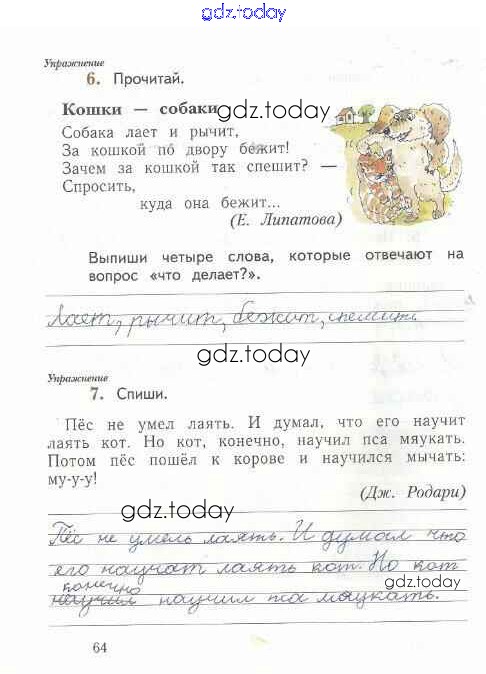 gdz.today
Упражнение
6. Прочитай.
Кошки — собаки
gdz.today
Собака лает и рычит,
За кошкой по двору бежит!
Зачем за кошкой так спешит? —
Спросить,
куда она бежит...
(Е. Липатова)
Выпиши четыре слова, которые отвечают на
вопрос «что делает?».
Лает, рычит, бежит, спешит.
gdz.today
Упражнение
7. Спиши.
Пёс не умел лаять. И думал, что его научит
лаять кот. Но кот, конечно, научил пса мяукать.
Потом пёс пошёл к корове и научился мычать:
му-у-у!
(Дж. Родари)
gdz.today
Пёс не умель лаять. И думал что
его научат лаять кот. Но кот
gdz.today
конечно
научил научил пса мяукать.
64